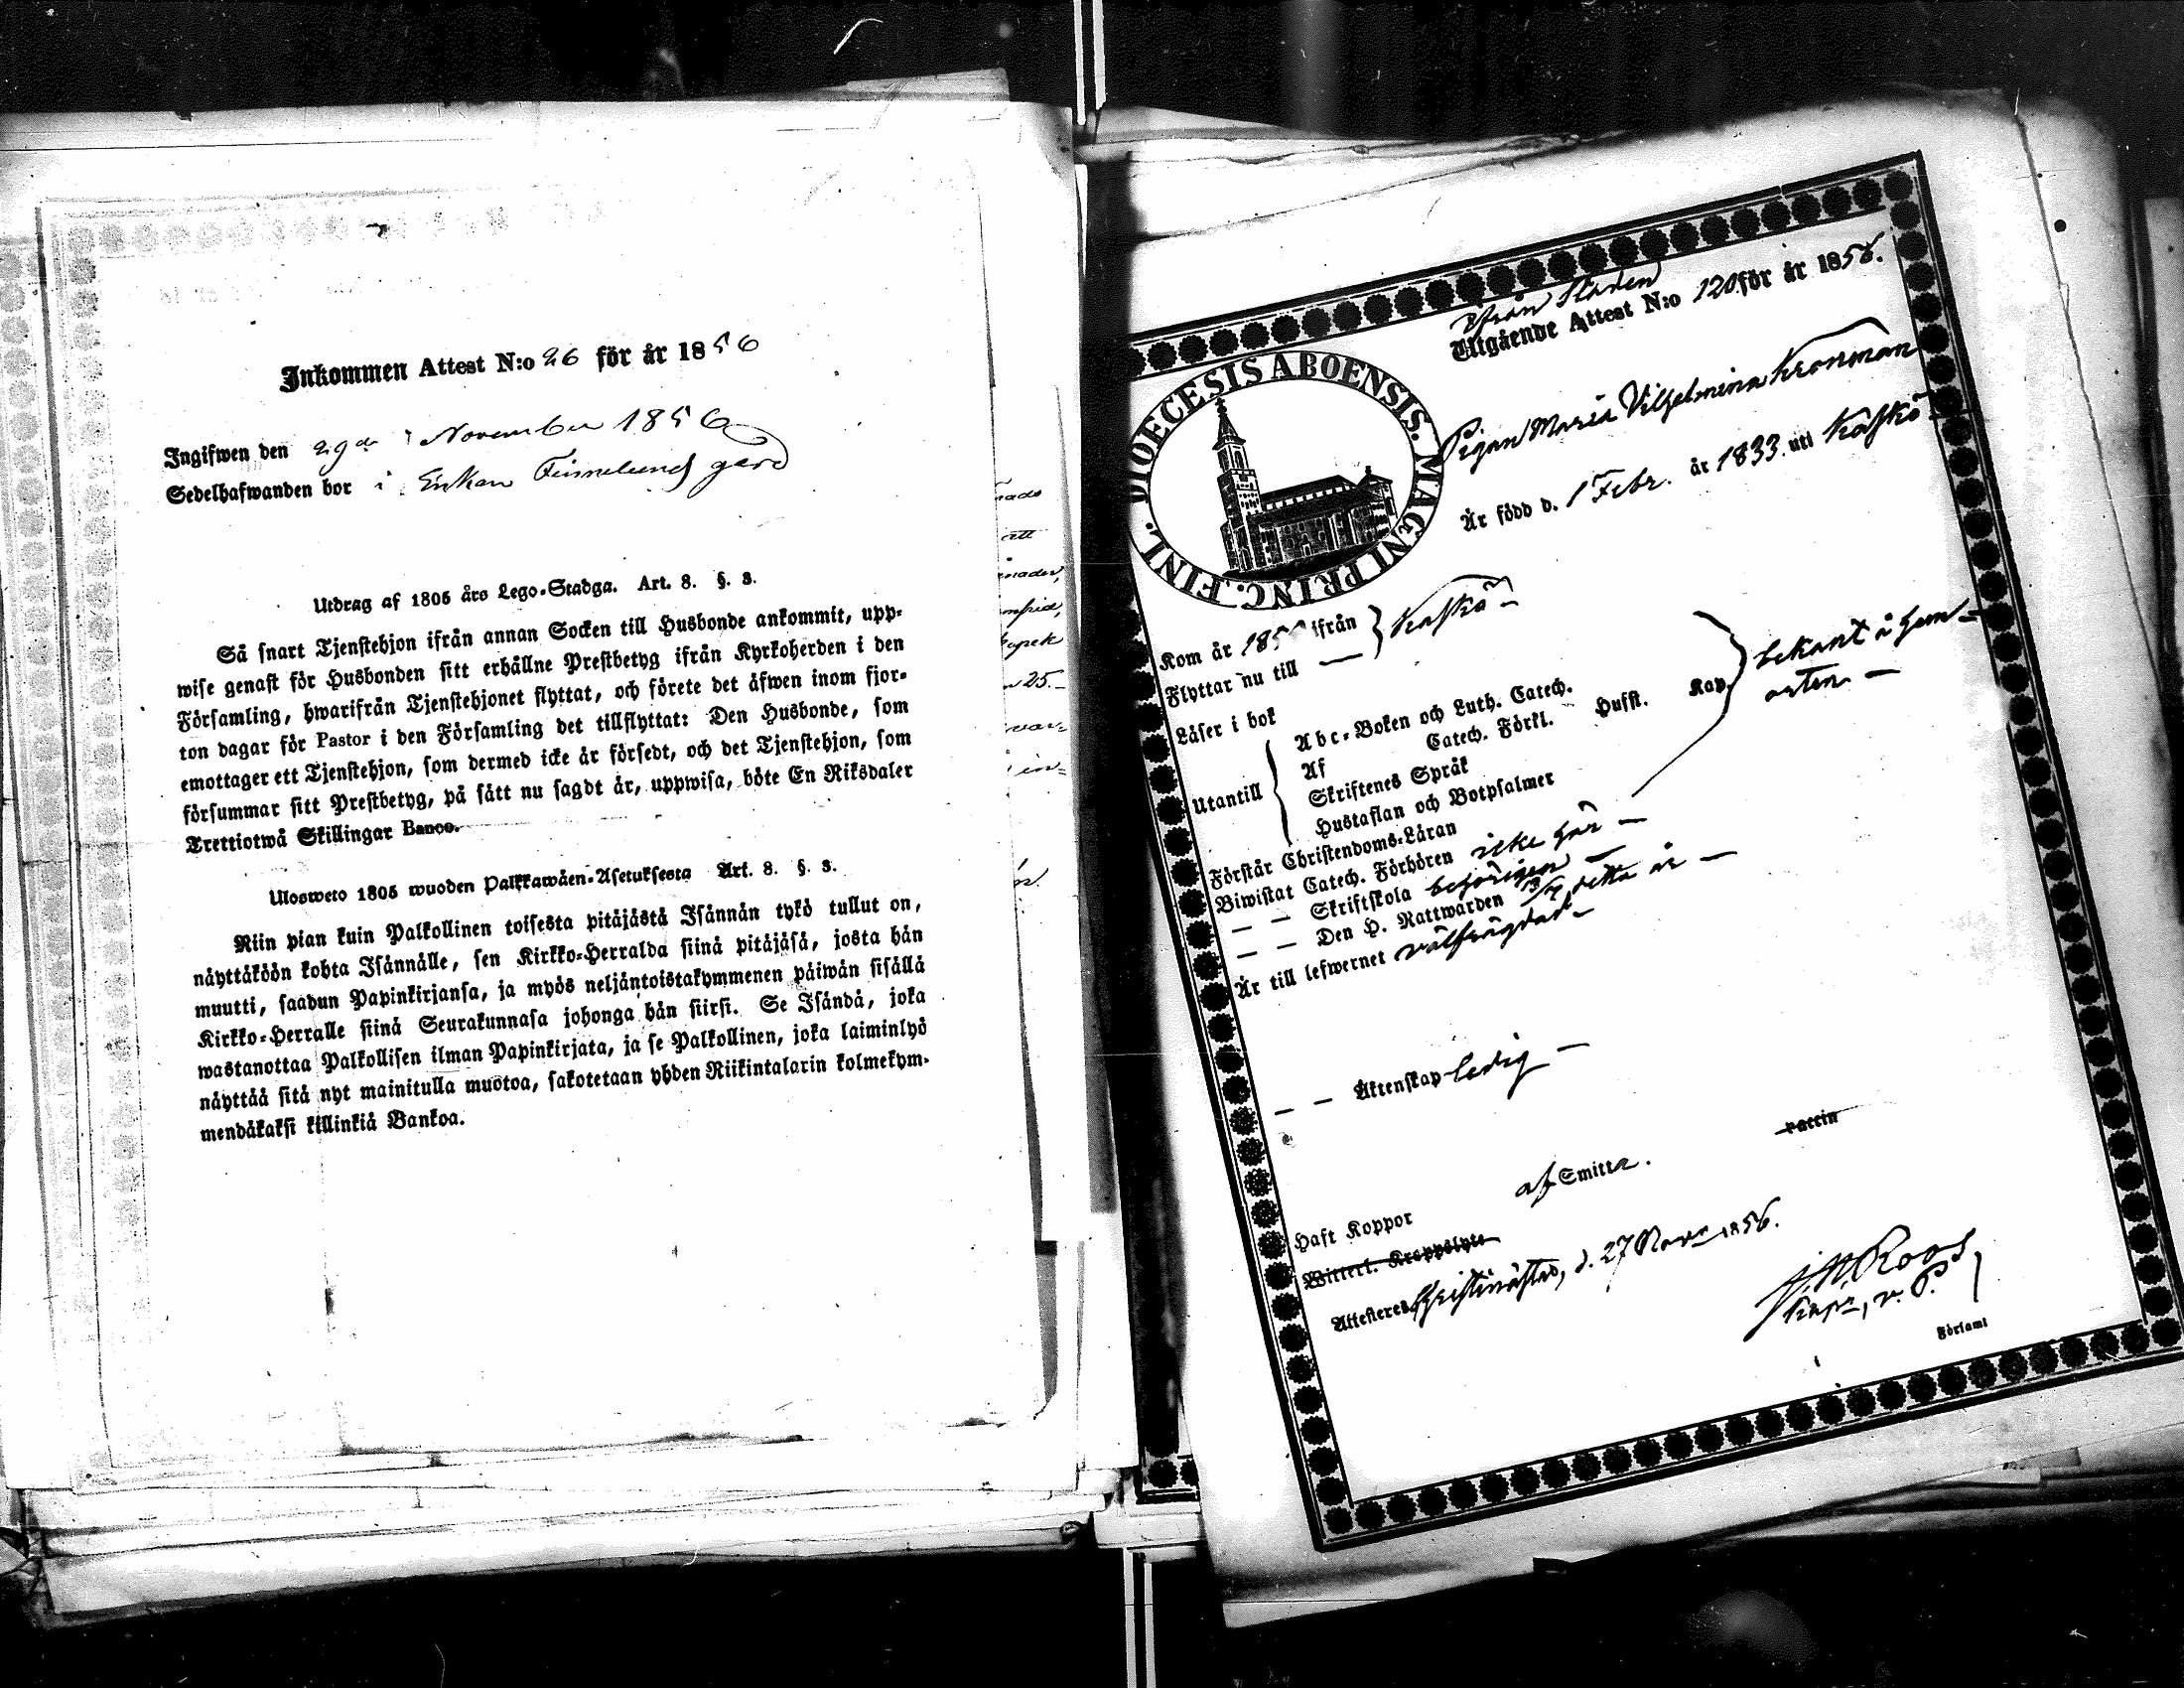 Inkommen Attest N:o 26 för år 1856
Ingifwen den 29de November 1856
Sedelhafwanden bor i Enkan Finnelunds gård
Utdrag af 1805 års Lego-Stadga. Art. 8. §. 3.
Så snart Tjenstehjon ifrån annan Socken till Husbonde ankommit, upp-
wise genast för Husbonden sitt erhållne Prestbetyg ifrån Kyrkoherden i den
Församling, hwarifrån Tjenstehjonet flyttat, och förete det äfwen inom fjor-
ton dagar för Pastor i den Församling det tillflyttat: Den Husbonde, som
emottager ett Tjenstehjon, som dermed icke är försedt, och det Tjenstehjon, som
försummar sitt Prestbetyg, på sätt nu sagdt är, uppwisa, böte En Riksdaler
Trettiotwå Skillingar Banco.
Ulosweto 1805 wuoden Palkkawäen-Asetuksesta Art. 8. §. 3.
Niin pian kuin Palkollinen toisesta pitäjästä Isännän tykö tullut on,
näyttäköön kohta Isännälle, sen Kirkko-Herralda siinä pitäjäsä, josta hän
muutti, saadun Papinkirjansa, ja myös neljäntoistakymmenen päiwän sisällä
Kirkko-Herralle siinä Seurakunnasa johonga hän siirsi. Se Isändä, joka
wastanottaa Palkollisen ilman Papinkirjata, ja se Palkollinen, joka laiminlyö
näyttää sitä nyt mainitulla muotoa, sakotetaan yhden Riikintalarin kolmekym-
mendäkaksi killinkiä Bankoa.
ifrån Staden
Utgående Attest N:o 120 för år 1856.
DIOECESIS ABOENSIS. MAGNI PRINC. FINL.
Pigan Maria Vilhelmina Kronman
Är född d. 1 Febr. år 1833. uti Kaskö
Kom år 18 ifrån } Kaskö
Flyttar nu till
Läser i bok
Abc-Boken och Luth. Catech.
Utantill Af Catech. Förkl. Hufst. Kap. bekant å hem-
orten
Skriftenes Språk
Hustaflan och Botpsalmer
Förstår Christendoms-Läran
Biwistat Catech. Förhören icke här
— — Skriftskola behörigen
— — Den H. Nattwarden 13/4 detta år
Är till lefwernet välfrägdad
— — Äktenskap ledig
Haft Koppor af Smitta. vaccin
Witterl. Kroppslyte
Attesteres Christinæstad, d. 27 Novr 1856.
Roos
Kapn, v. P.
Församl